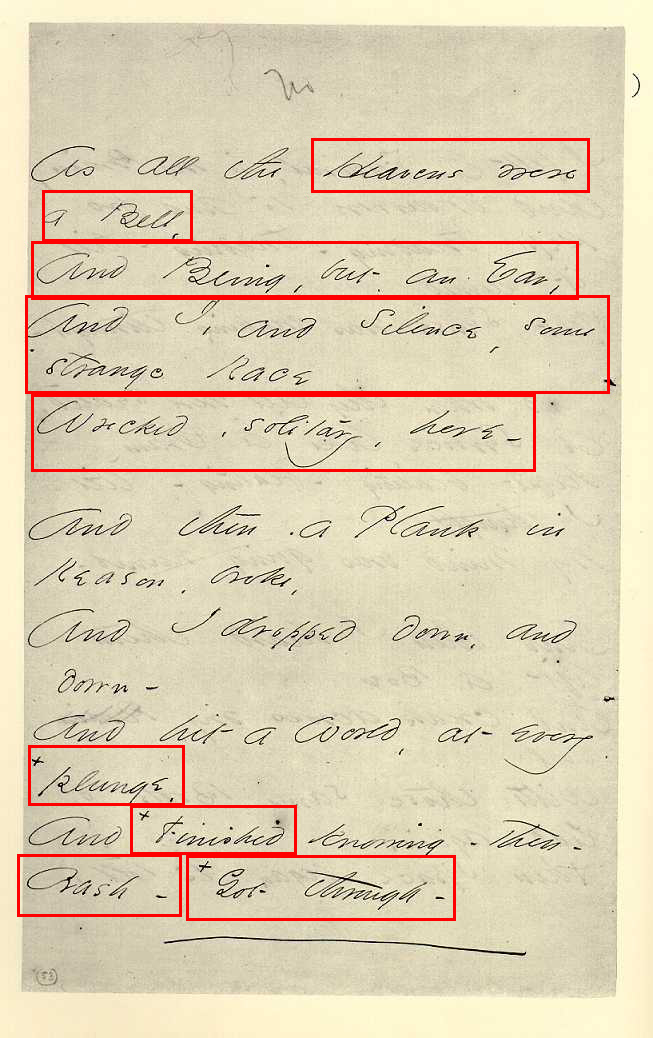 No
As all the Heavens were
a Bell,
And Being, but an Ear,
And I, and Silence, some
strange Race
Wrecked, solitary, here -
And then a Plank in
Reason, broke,
And I dropped down, and
down -
And hit a World, at every
+ plunge,
And + Finished knowing - then -
Crash - + Got through -
53